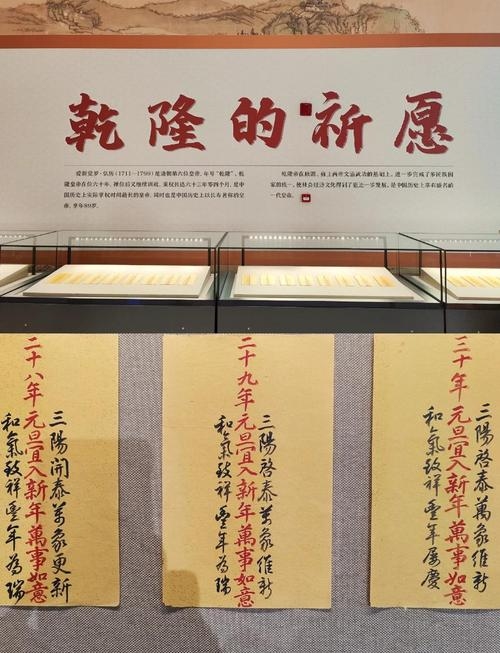 乾隆的祈愿
爱新觉罗·弘历（1711—1799）是清朝第六位皇帝，年号“乾隆”。乾
隆皇帝在位六十年，禅位后又继续训政，秉权长达六十三年零四个月，是中
国历史上实际掌权时间最长的皇帝，同时也是中国历史上以长寿著称的皇
帝，享年89岁。
乾隆帝在 雍正两朝文治武功的基础上，进一步完成了多民族国
家的统一，使社会经济文化得到了更进一步发展，是中国历史上享有盛名的一
代皇帝。
三陽開泰萬象更新
二十八年元旦宜入新年萬事如意
和氣致祥豐年為瑞
三陽啓泰萬象維新
二十九年元旦宜入新年萬事如意
和氣致祥豐年為瑞
三陽啓泰萬象維新
三十年元旦宜入新年萬事如意
和氣致祥豐年屢慶